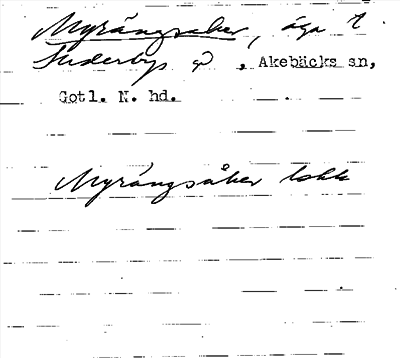 Myrängsåker, äga t
Suderbys, Akebäcks sn,
Gotl. N. hd.
Myrängsåker lokk